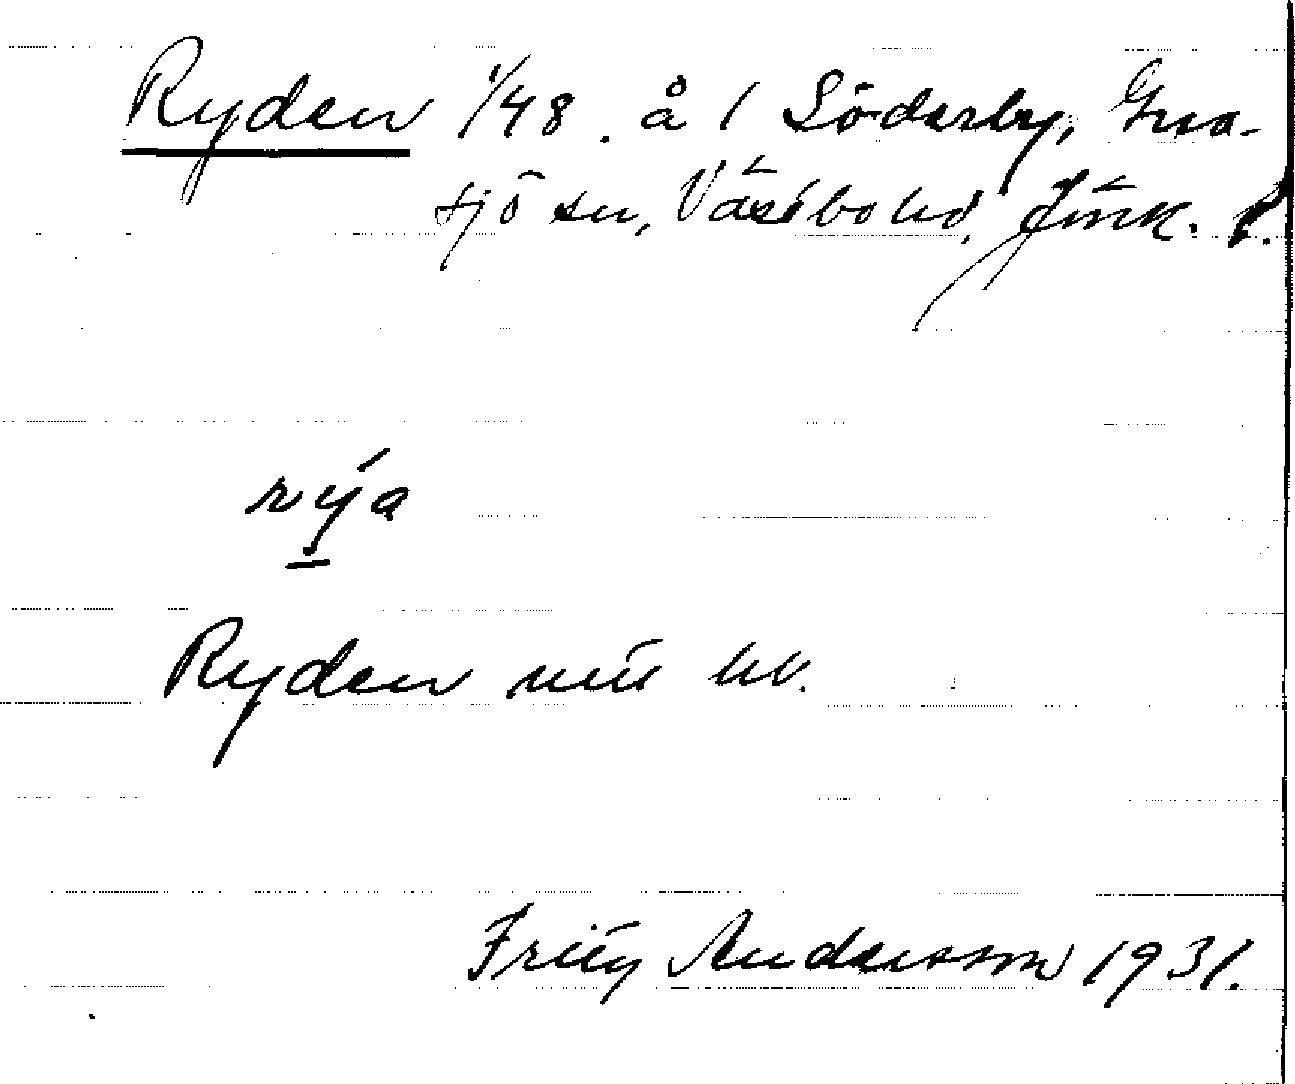 Ryden 1/48. å 1 Söderby, Gna-
sjö sn, Västbo hd, Jönk. l.
rýa
Ryden
Frity Andersson 1931.